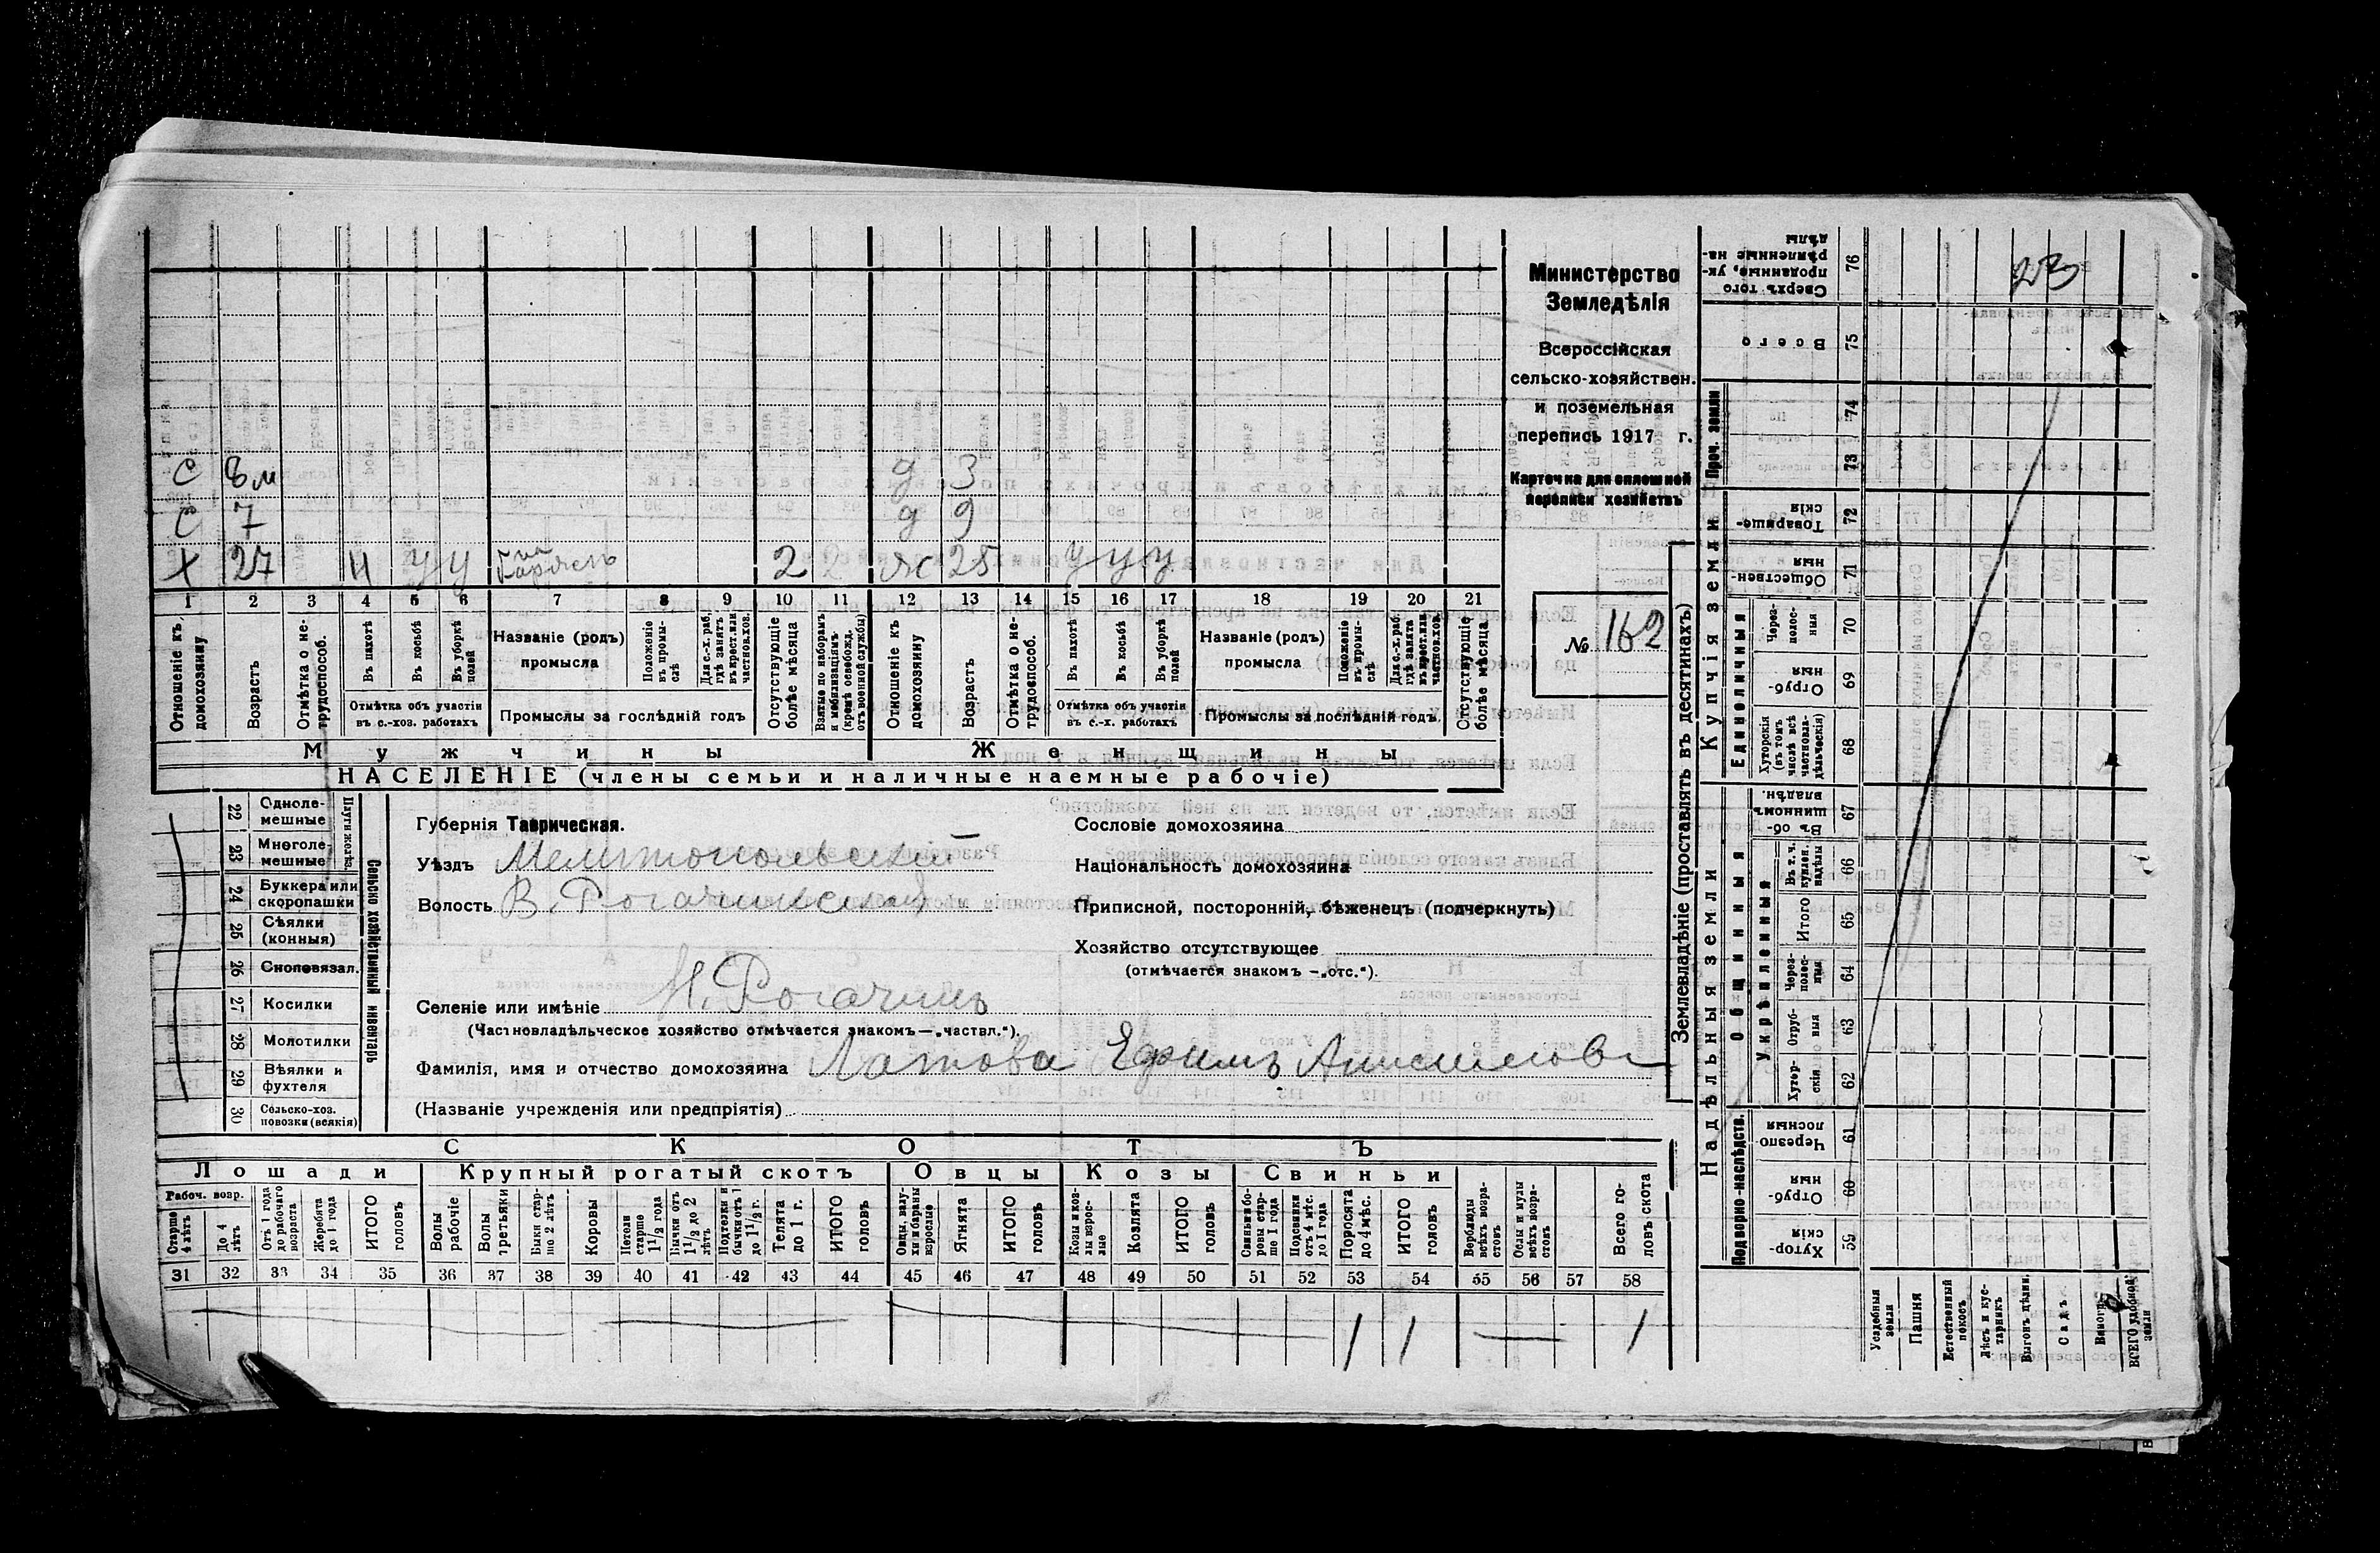 С 8м д 3
С 7 д 9
Х 27 ч у у на 2 ж 25 у у у
1 2 3 4 5 6 7 8 9 10 11 12 13 14 15 16 17 18 19 20 21
Отношеніе къ домохозяину
Возрастъ
Отмѣтка о нетрудоспособ.
Въ пахотѣ
Въ косьбѣ
Въ уборкѣ полей
Отмѣтка объ участіи въ с.-хоз. работахъ
Названіе (родъ) промысла
Положеніе въ промыслѣ
Для с.-х. раб. гдѣ занятъ въ крест. или частнов. хоз.
Промыслы за послѣдній годъ
Отсутствующіе болѣе мѣсяца
Взятые по наборамъ и мобилизаціямъ (кромѣ освобожд. отъ военной службы)
Отношеніе къ домохозяину
Возрастъ
Отмѣтка о нетрудоспособ.
Въ пахотѣ
Въ косьбѣ
Въ уборкѣ полей
Отмѣтка объ участіи въ с.-х. работахъ
Названіе (родъ) промысла
Положеніе въ промыслѣ
Для с.-х. раб. гдѣ занята въ крест. или частнов. хоз.
Промыслы за послѣдній годъ
Отсутствующіе болѣе мѣсяца
Мужчины Женщины
НАСЕЛЕНІЕ (члены семьи и наличные наемные рабочіе)
Министерство
Земледѣлія
Всероссійская
сельско-хозяйствен.
и поземельная
перепись 1917 г.
Карточка для сплошной
переписи хозяйствъ
№ 162
22 Одноле-
мешные
23 Многоле-
мешные
24 Буккера или
скоропашки
25 Сѣялки
(конныя)
26 Сноповязал.
27 Косилки
28 Молотилки
29 Вѣялки и
фухтеля
30 Сельско-хоз.
повозки (всякія)
Сельско хозяйственный инвентарь
Губернія Таврическая.
Уѣздъ Мелитопольскій
Волость В. Рогачинская
Селеніе или имѣніе Н. Рогачикъ
(Частновладѣльческое хозяйство отмѣчается знакомъ — „частвл.“).
Фамилія, имя и отчество домохозяина Латова Ефимъ Анисимовъ
(Названіе учрежденія или предпріятія)
Сословіе домохозяина
Національность домохозяина
Приписной, посторонній, бѣженецъ (подчеркнуть)
Хозяйство отсутствующее
(отмѣчается знакомъ — „отс.“).
СКОТЪ
Лошади Крупный рогатый скотъ Овцы Козы Свиньи
Рабоч. возр.
Старше 4 лѣтъ
До 4 лѣтъ
Отъ 1 года до рабочаго возраста
Жеребята до 1 года
ИТОГО головъ
Волы рабочіе
Волы третьяки
Быки старше 2 лѣтъ
Коровы
Нетели старше 1 1/2 года
Бычки отъ 1 1/2 до 2 лѣтъ
Подтелки и бычки отъ 1 до 1 1/2 г.
Телята до 1 г.
ИТОГО головъ
Овцы, валухи и бараны взрослые
Ягнята
ИТОГО головъ
Козы и козлы взрослые
Козлята
ИТОГО головъ
Свиньи боровы старше 1 года
Подсвинки отъ 4 мѣс. до 1 года
Поросята до 4 мѣс.
ИТОГО головъ
Верблюды всѣхъ возрастовъ
Ослы и мулы всѣхъ возрастовъ
Всего головъ скота
31 32 33 34 35 36 37 38 39 40 41 42 43 44 45 46 47 48 49 50 51 52 53 54 55 56 57 58
1 1 1
Землевладѣніе (проставлять въ десятинахъ)
Надѣльныя земли
Купчія земли
Проч. земли
Подворно-наслѣдств.
общинныя
Укрѣпленныя
Единоличныя
Сверхъ того проданные, укрѣпленные надѣлы 76 23
Всего 75
74
73
Товарищескія 72
Общественныя 71
Черезполосныя 70
Отрубныя 69
Хуторскія (въ томъ числѣ всѣ частновладѣльческія) 68
Въ общинномъ владѣн. 67
Въ т. ч. куплен. надѣлы 66
Итого 65
Черезполосныя 64
Отрубныя 63
Хуторскія 62
Черезполосныя 61
Отрубныя 60
Хуторскія 59
Усадебныя земли
Пашня
Естественный покосъ
Лѣсъ и кустарникъ
Выгонъ
Садъ
ВСЕГО удобной земли